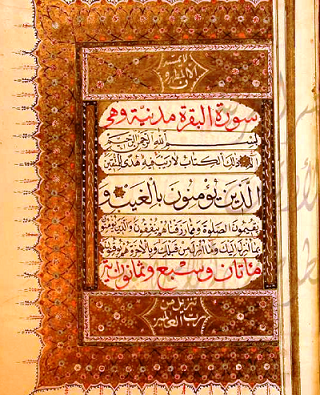 لا يمسه
الا المطهرو
ن
سورة البقرة مدنية وهي
بسم الله الرحمن الرحيم
الم ذلك الكتاب لا ريب فيه هدى للمتقين
الذين يؤمنون بالغيب و
يقيمون الصلوة ومما رزقناهم ينفقون والذين يؤمنون
بما انزل اليك وما انزل من قبلك وبالآخرة هم يوقنون
مائتان وسبع وثمانون
تنزيل من
رب العالمين